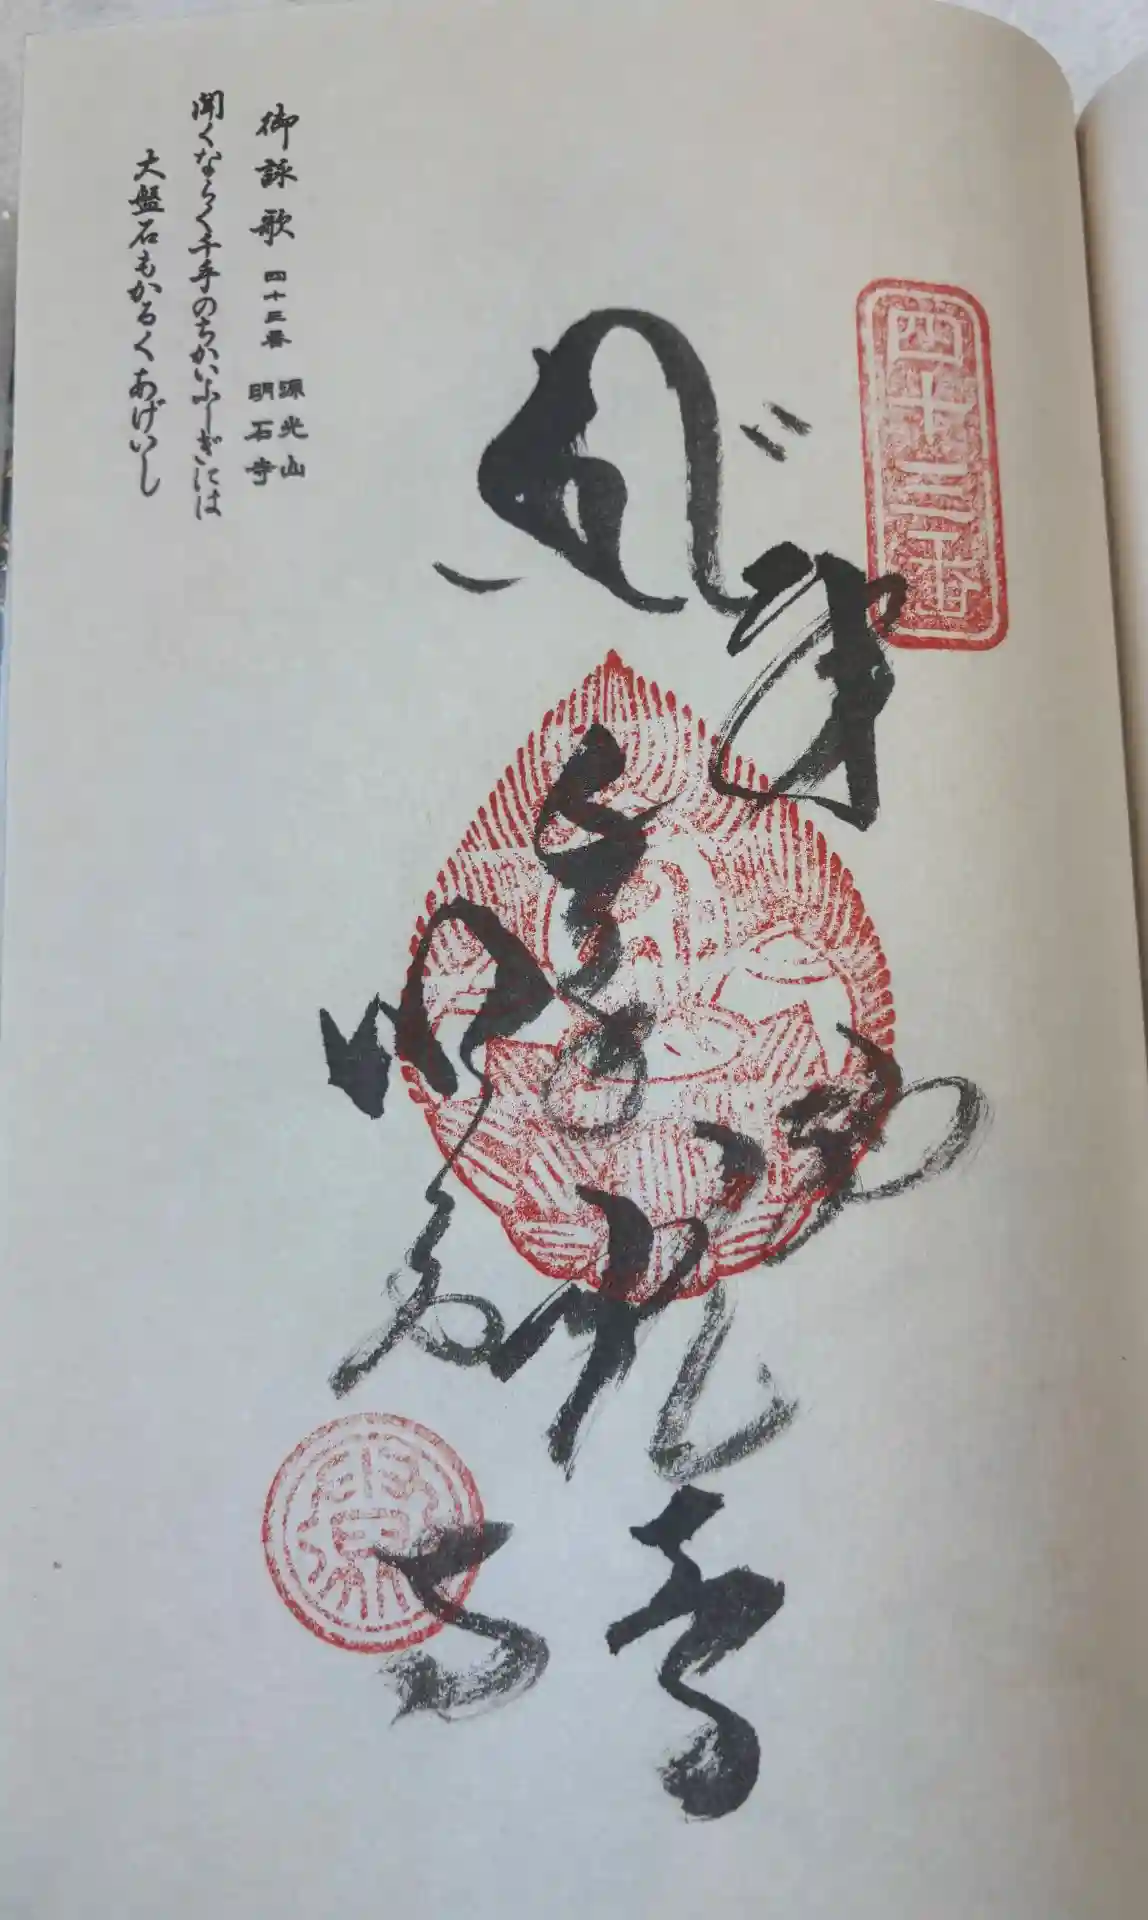 四十三番
奉納
明石寺
御詠歌 四十三番 源光山 明石寺
聞くならく千手のちかいふしぎには
大盤石もかろくあげいし